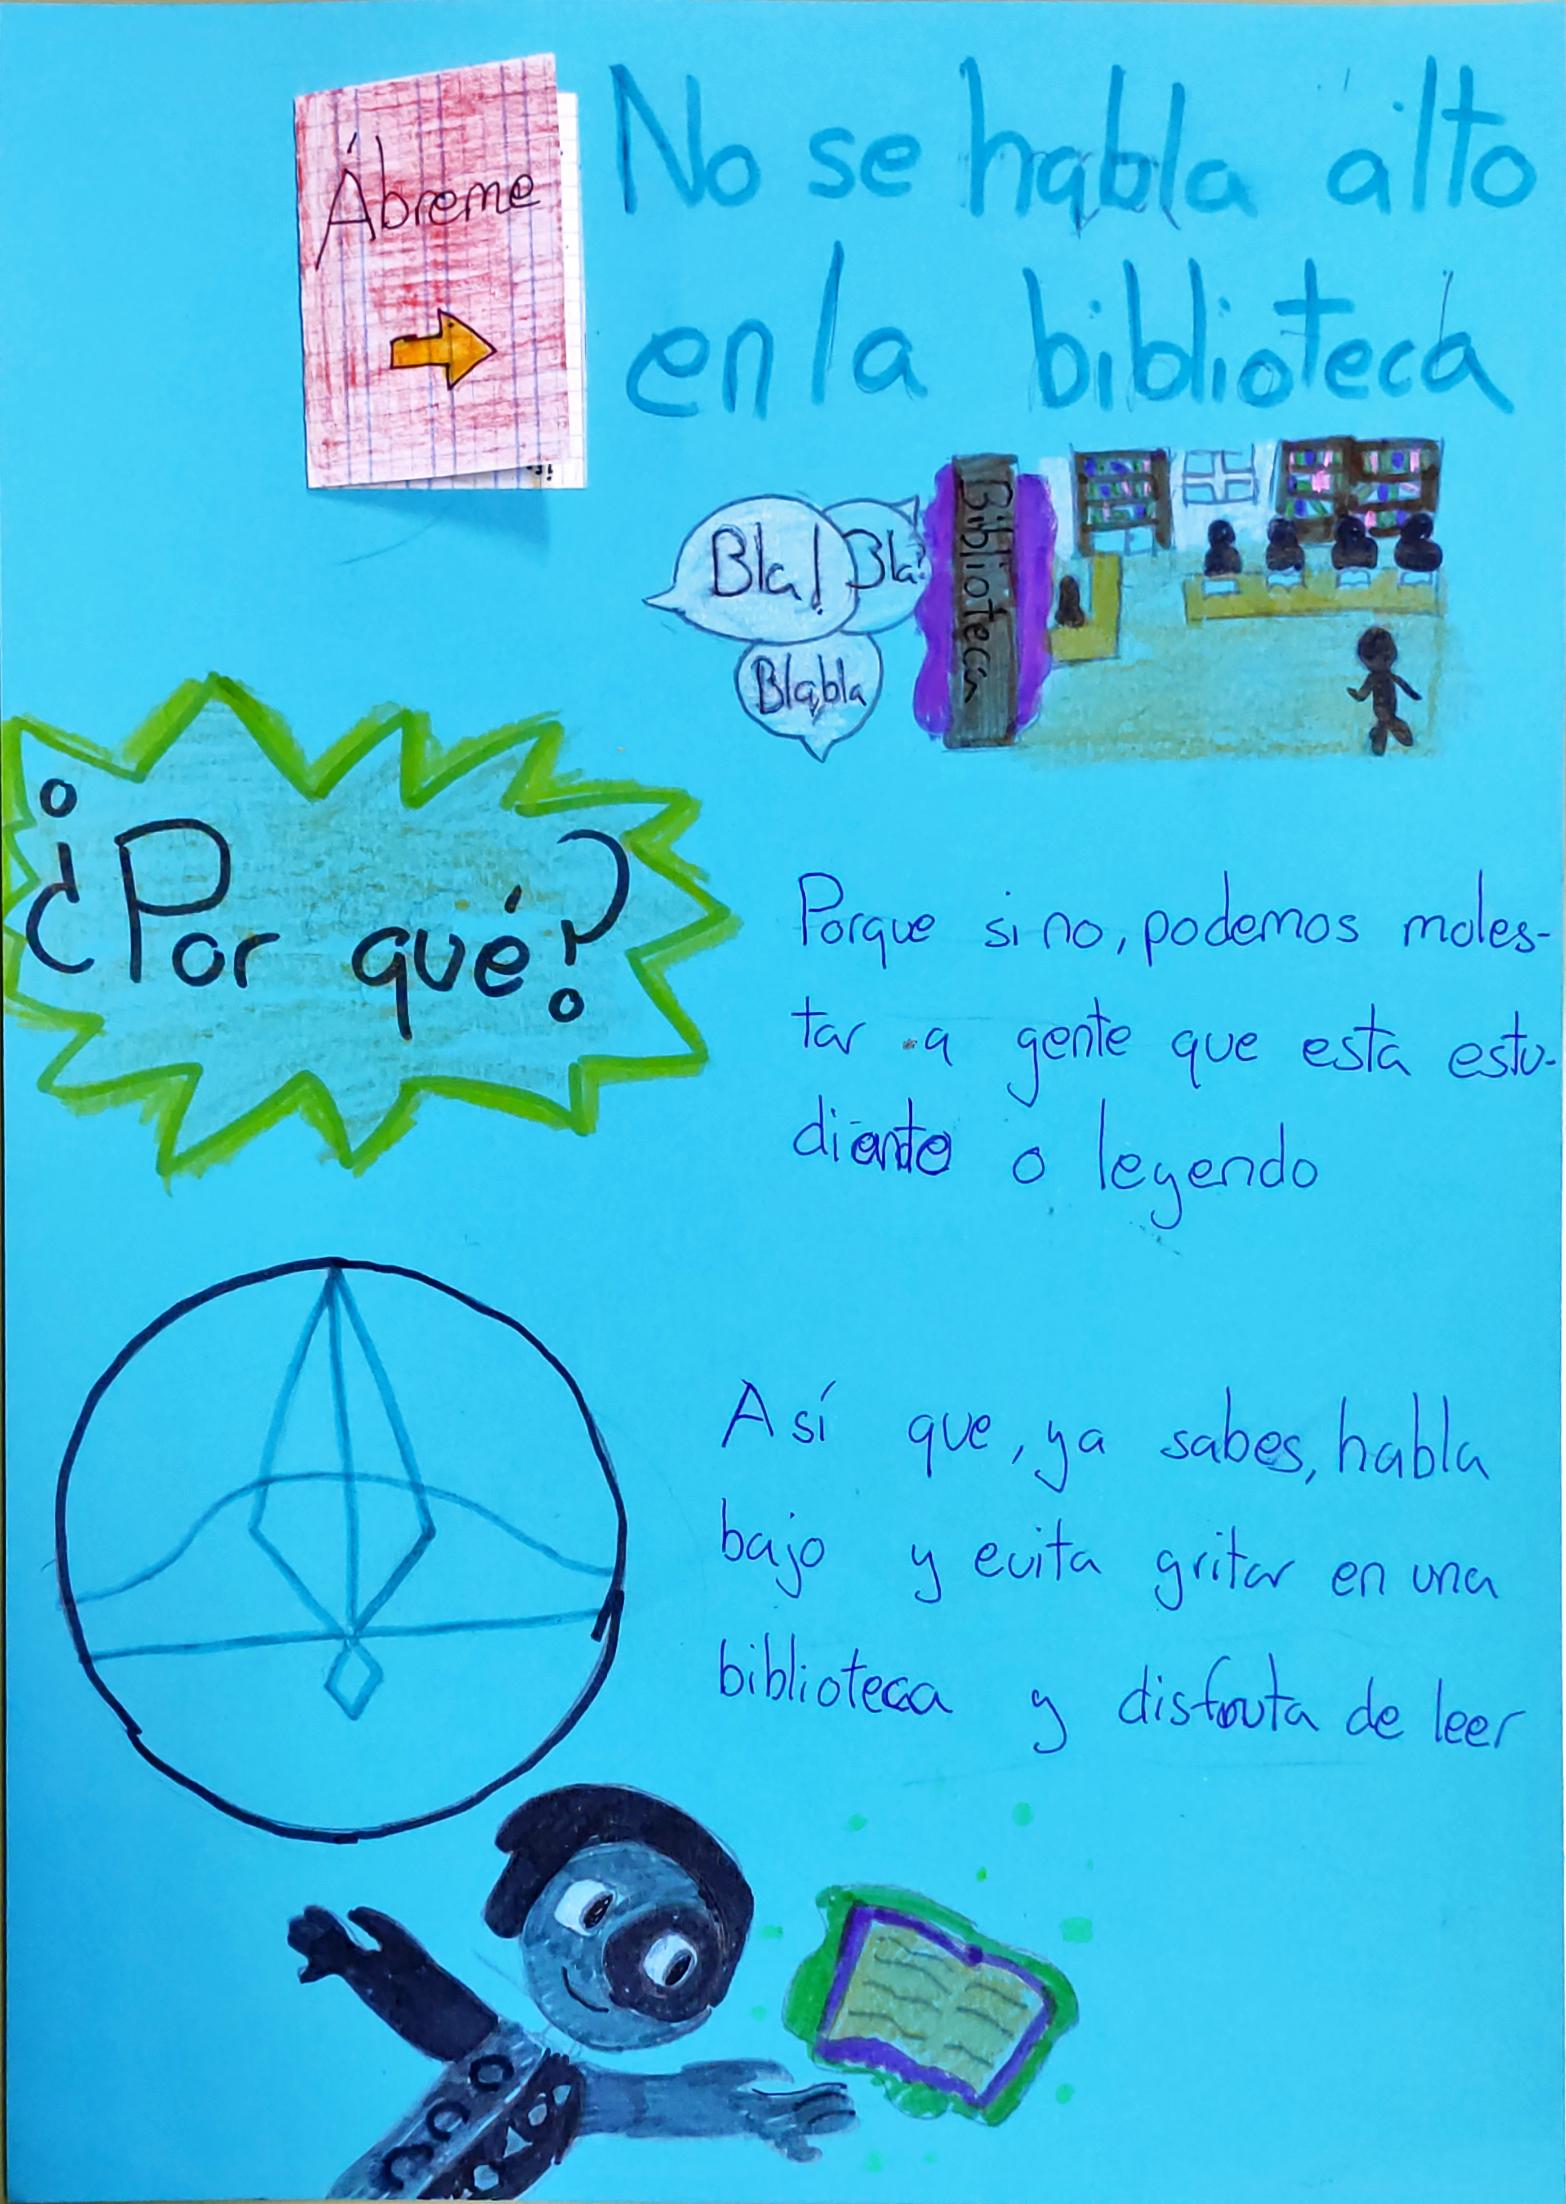 Ábreme
No se habla alto
en la biblioteca
Bla! Bla!
Blabla
Biblioteca
¿Por qué?
Porque si no, podemos moles-
tar a gente que esta estu-
diando o leyendo
Así que, ya sabes, habla
bajo y evita gritar en una
biblioteca y disfruta de leer